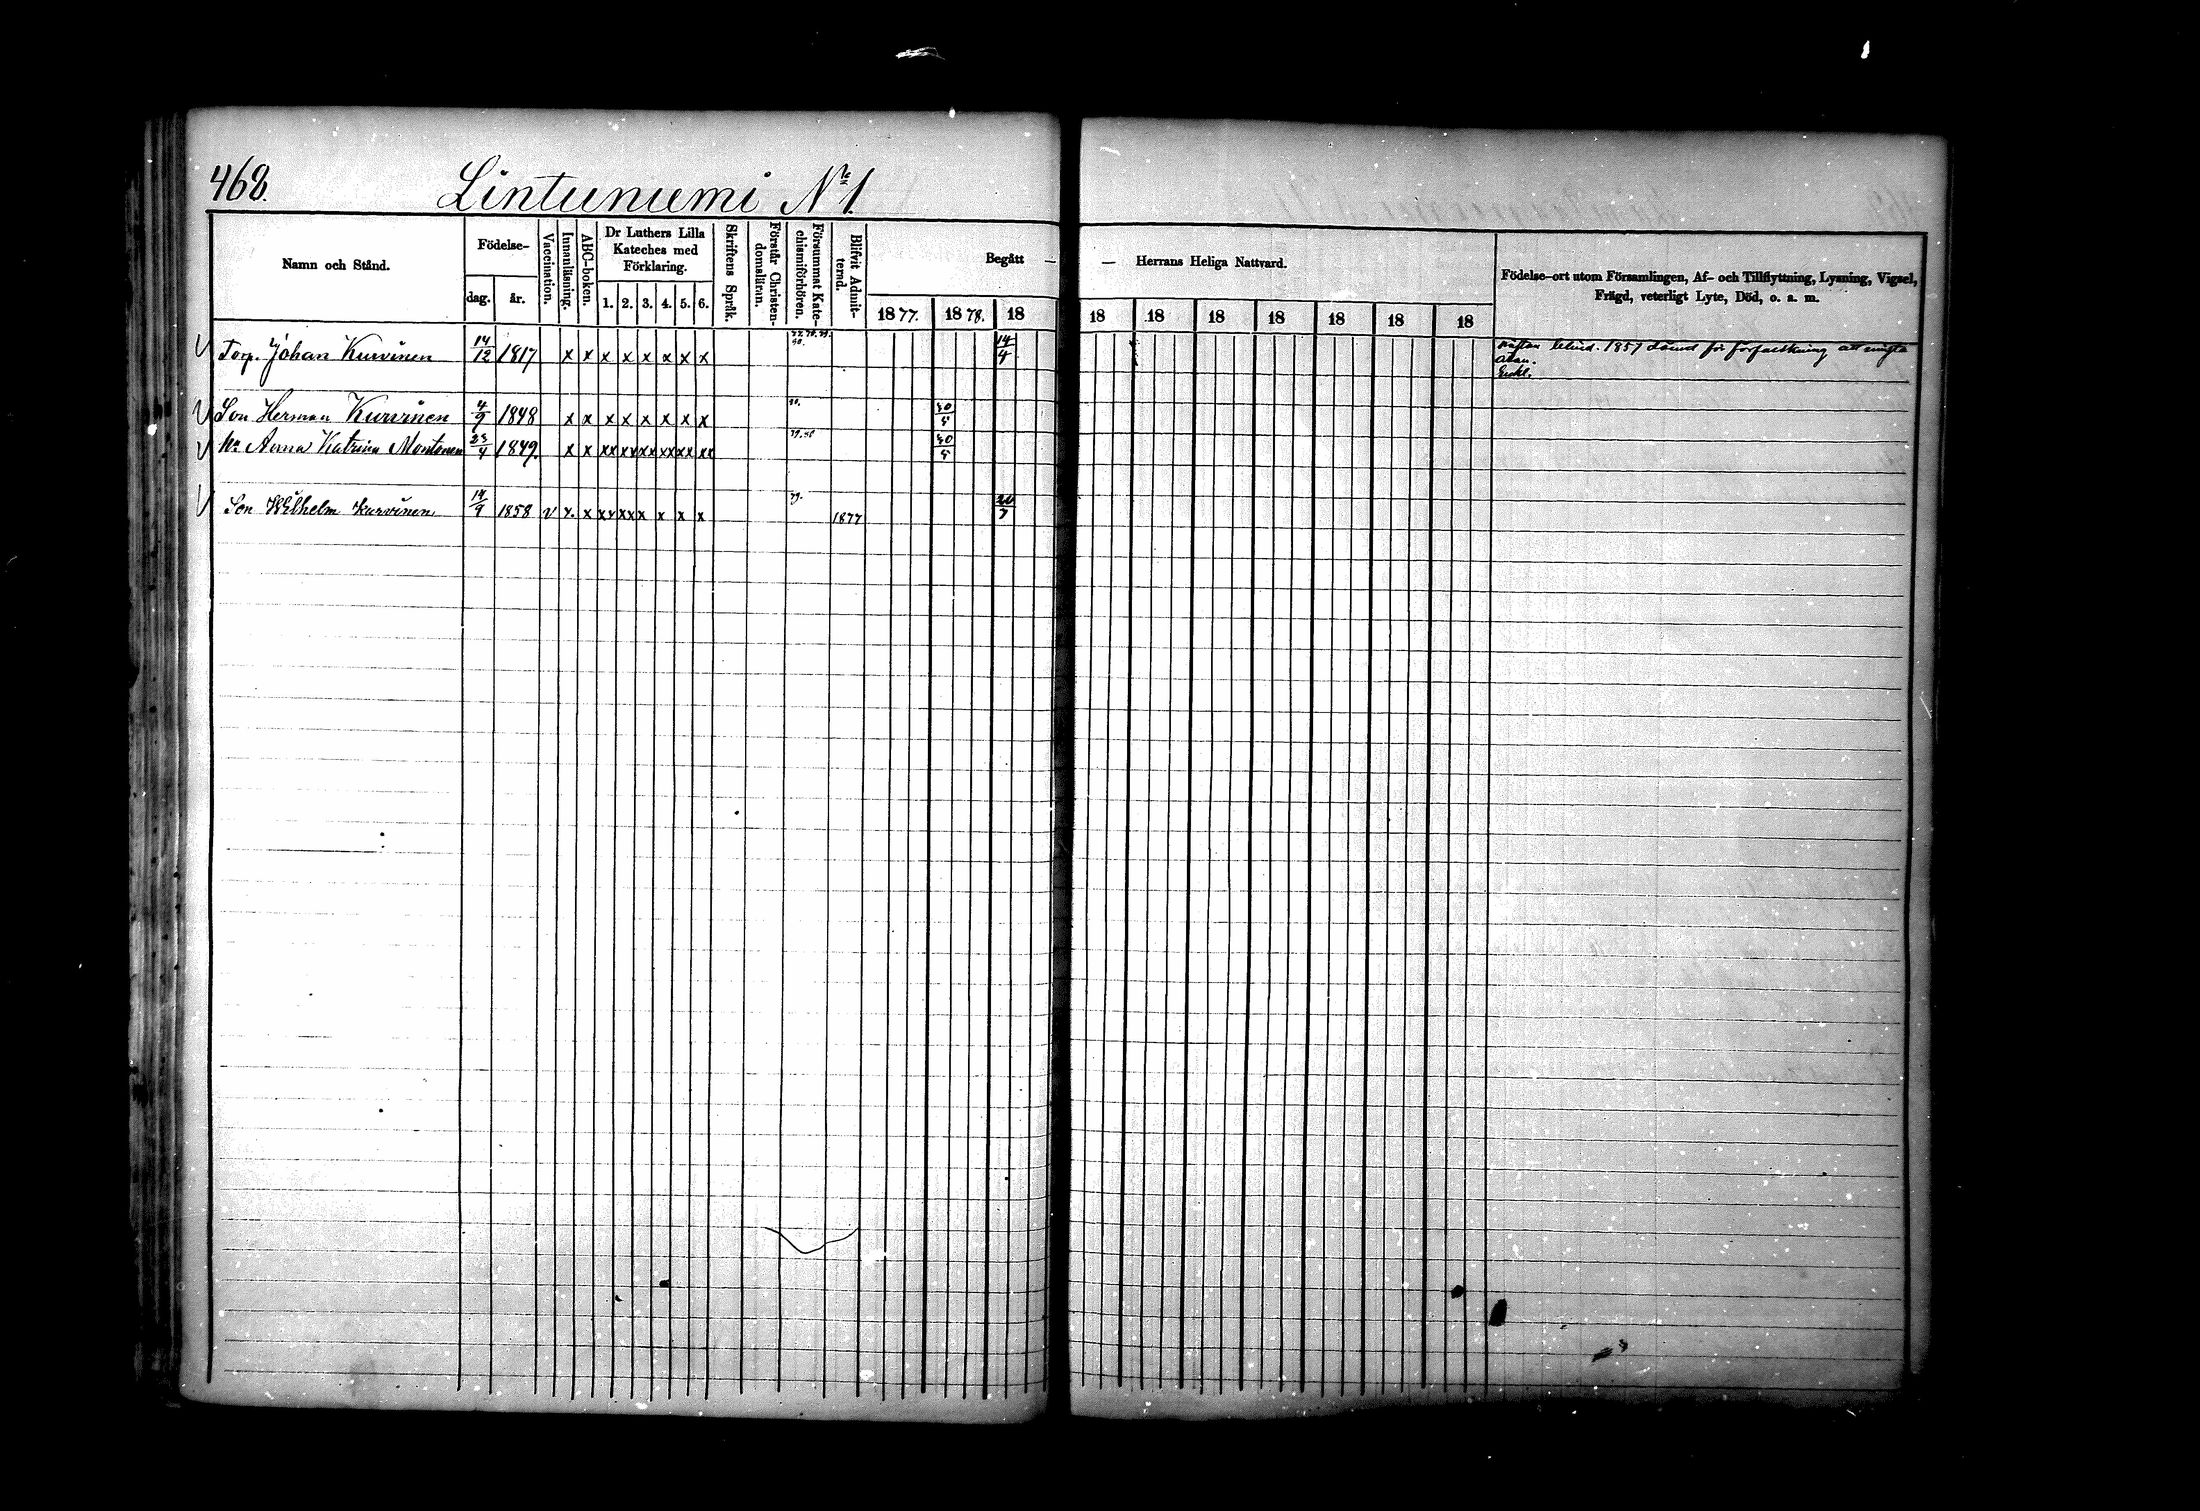 468.
Lintuniemi No 1.
Namn och Stånd.
Födelse-
dag.
år.
Vaccination.
Innanläsning.
ABC-boken.
Dr Luthers Lilla
Kateches med
Förklaring.
1. 2. 3. 4. 5. 6.
Skriftens Språk.
Förstår Christen-
domsläran.
Försummat Kate-
chismiförhören.
Blifvit Admit-
terad.
Begått — — Herrans Heliga Nattvard.
1877. 1878. 18 18 18 18 18 18 18 18
Födelse-ort utom Församlingen, Af- och Tillflyttning, Lysning, Vigsel,
Frägd, veterligt Lyte, Död, o. s. m.
Torp. Johan Kurvinen 14/12 1817 x x x x x x x x 77. 78. 79. 80. 14/4 nästan blind. 1857 dömd för
Enkl.
Son Herman Kurvinen 4/9 1848 x x x x x x x x 80. 30/5
Anna Katrina Montonen 23/4 1849. x x xx xx xx xx xx xx 79. 80 30/5
Son Wilhelm Kurvinen 1858 v x. x xx xx x x x x 79. 1877